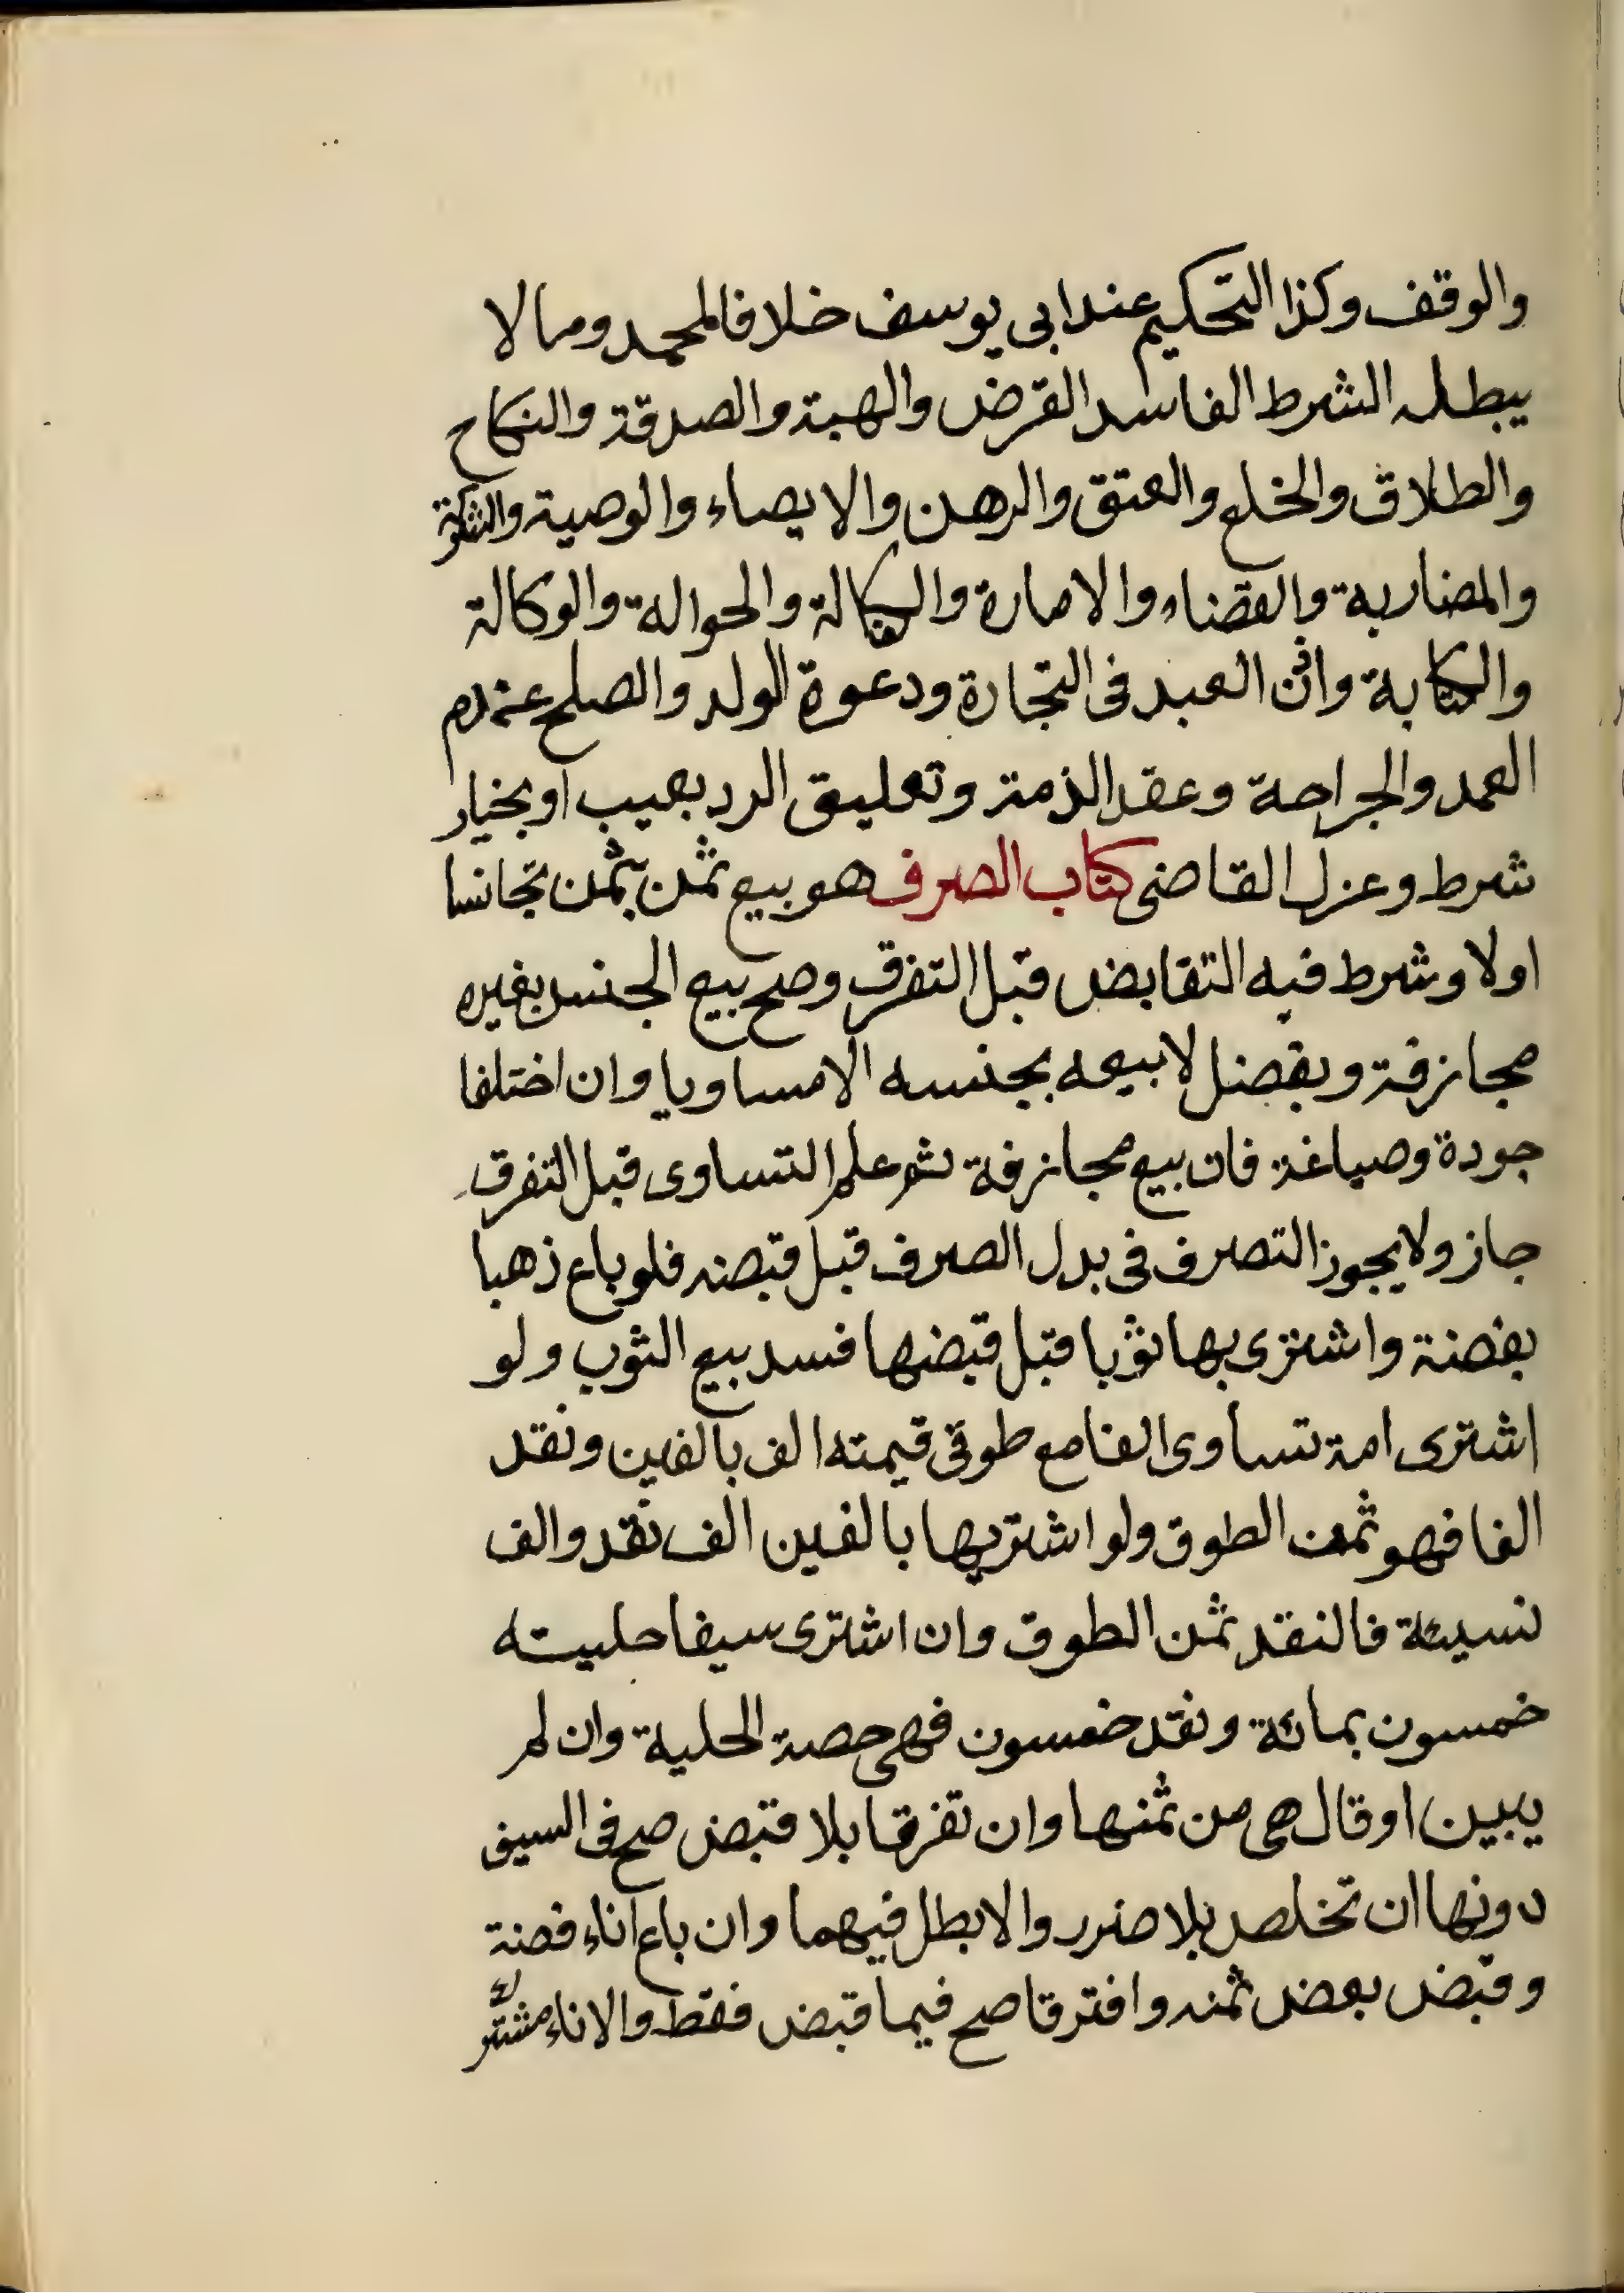 والوقف وكذا التحكيم عند ابى يوسف خلافا لمحمد وما لا
يبطله الشرط الفاسد القرض والهبة والصدقة والنكاح
والطلاق والخلع والعتق والرهن والايصاء والوصية والشركة
والمضاربة والقضاء والامارة والكفالة والحوالة والوكالة
والكتابة واذن العبد فى التجارة ودعوة الولد والصلح عن دم
العمد والجراحة وعقد الذمة وتعليق الرد بعيب او بخيار
شرط وعزل القاضى كتاب الصرف هو بيع ثمن بثمن تجانسا
اولا وشرط فيه التقابض قبل التفرق وصح بيع الجنس بغيره
مجازفة وبفضل لا بيعه بجنسه الا مساويا وان اختلفا
جودة وصياغة فان بيع مجازفة ثم علم التساوى قبل التفرق
جاز ولا يجوز التصرف فى بدل الصرف قبل قبضه فلو باع ذهبا
بفضة واشترى بها ثوبا قبل قبضها فسد بيع الثوب ولو
اشترى امة تساوى الفا مع طوق قيمته الف بالفين ونقد
الفا فهو ثمن الطوق ولو اشتريها بالفين الف نقد والف
نسيئة فالنقد ثمن الطوق وان اشترى سيفا حليته
خمسون بمائة ونقد خمسون فهى حصة الحلية وان لم
يبين او قال هى من ثمنها وان تفرقا بلا قبض صح فى السيف
دونها ان تخلص بلا ضرر والا بطل فيهما وان باع اناء فضة
وقبض بعض ثمنه وافترقا صح فيما قبض فقط والاناء مشترك